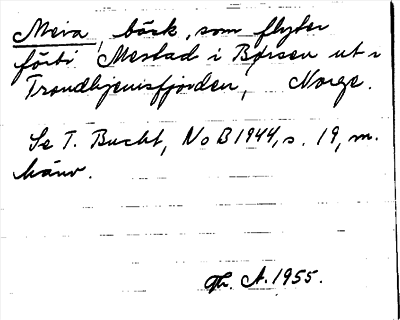 Meiva, bäck, som flyter
förbi Mestad i Børsen ut i
Trondhjemsfjorden, Norge.
Se T. Bucht, NoB 1944, s. 19, m.
hänv.
Th. A. 1955.